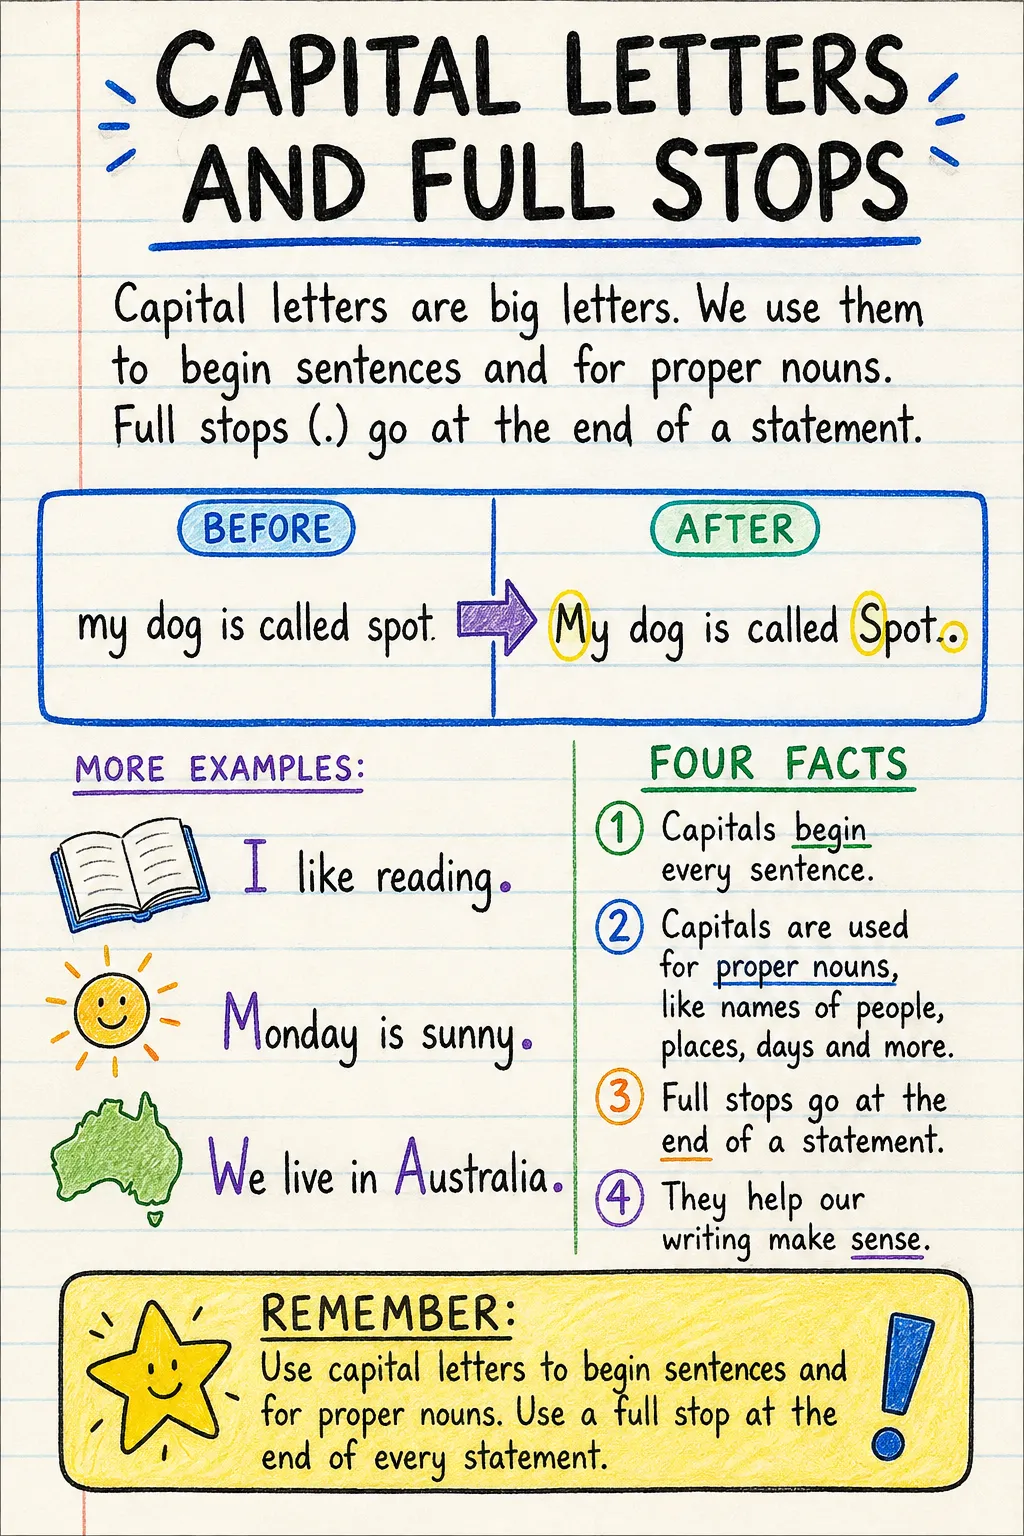 CAPITAL LETTERS
AND FULL STOPS
Capital letters are big letters. We use them
to begin sentences and for proper nouns.
Full stops (.) go at the end of a statement.
BEFORE
my dog is called spot.
AFTER
My dog is called Spot..
MORE EXAMPLES:
I like reading.
Monday is sunny.
We live in Australia.
FOUR FACTS
1 Capitals begin
every sentence.
2 Capitals are used
for proper nouns,
like names of people,
places, days and more.
3 Full stops go at the
end of a statement.
4 They help our
writing make sense.
REMEMBER:
Use capital letters to begin sentences and
for proper nouns. Use a full stop at the
end of every statement.